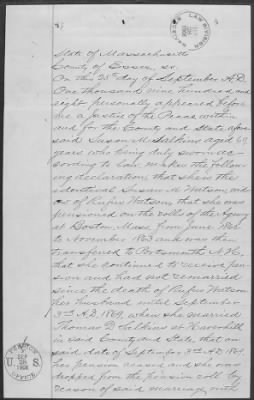 LAW DIVISION
State of Massachusetts
County of Essex, ss.
On this 25th day of September A.D.
One thousand nine hundred and
eight personally appeared before
me a justice of the Peace within
and for the County and State afore
said Susan M. Calkins aged 69
years who being duly sworn ac-
cording to law makes the follow-
ing declaration, that she is the
identical Susan M. Watson, wid-
ow of Rufus Watson, that she was
pensioned on the rolls of the Agency
at Boston Mass. from June
to November 1863 and was then
transferred to Portsmouth N.H.
that she continued to receive pen-
sion and had not remarried
since the death of Rufus Watson
her husband until September
3rd A.D. 1869, when she married
Thomas D. Calkins at Haverhill
in said County and State, that on
said date of September 3rd A.D. 1869
her pension ceased and she was
dropped from the pension roll by
reason of said marriage with
PENSION
U.S.
SEP
26
1908
OFFICE